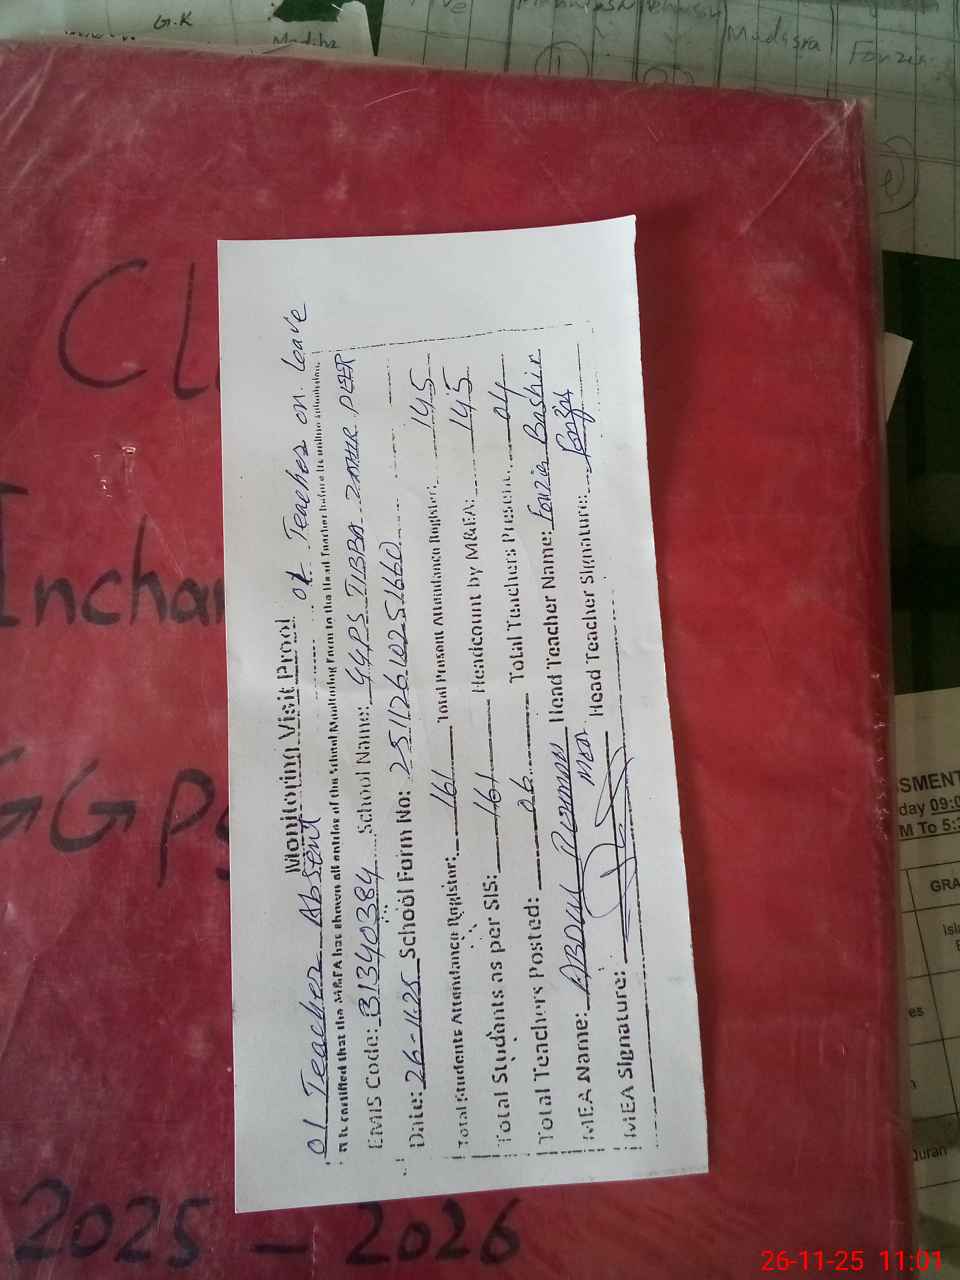 G.K
Madiha
Madasra
Fonzia
Cl
Inchar
GGPS
2025 - 2026
Monitoring Visit Proof
01 Teacher Absent
01 Teacher on leave
It is certified that the M&EA has shown all entries of the School Monitoring Form to the Head Teacher before its online submission.
EMIS Code: 31340384 School Name: GGPS TIBBA ZAHIR PEER
Date: 26-11-25 School Form No: 25112610251660
Total Students Attendance Register: 161 Total Present Attendance Register: 145
Total Students as per SIS: 161 Headcount by M&EA: 145
Total Teachers Posted: 06 Total Teachers Present: 04
MEA Name: ABDUL REHMAN Head Teacher Name: Fouzia Bashir
MEA
MEA Signature: Head Teacher Signature: Fouzia
SSMENT
day 09:0
M To 5:3
GRA
Isl
es
Quran
26-11-25 11:01